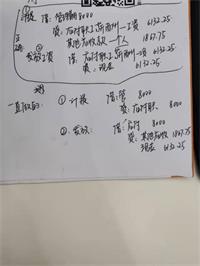 计提 借:管理费用 8000
贷:应付职工薪酬—工资 6132.25
其他应收款—个人 1867.75
正确
②发放工资 借:应付职工薪酬—工资 6132.25
贷:现金 6132.25
一直做的:
①计提 借:管 8000
贷:应付职 8000
②发放: 借:应付 8000
贷:其他应收 1867.75
现金 6132.25